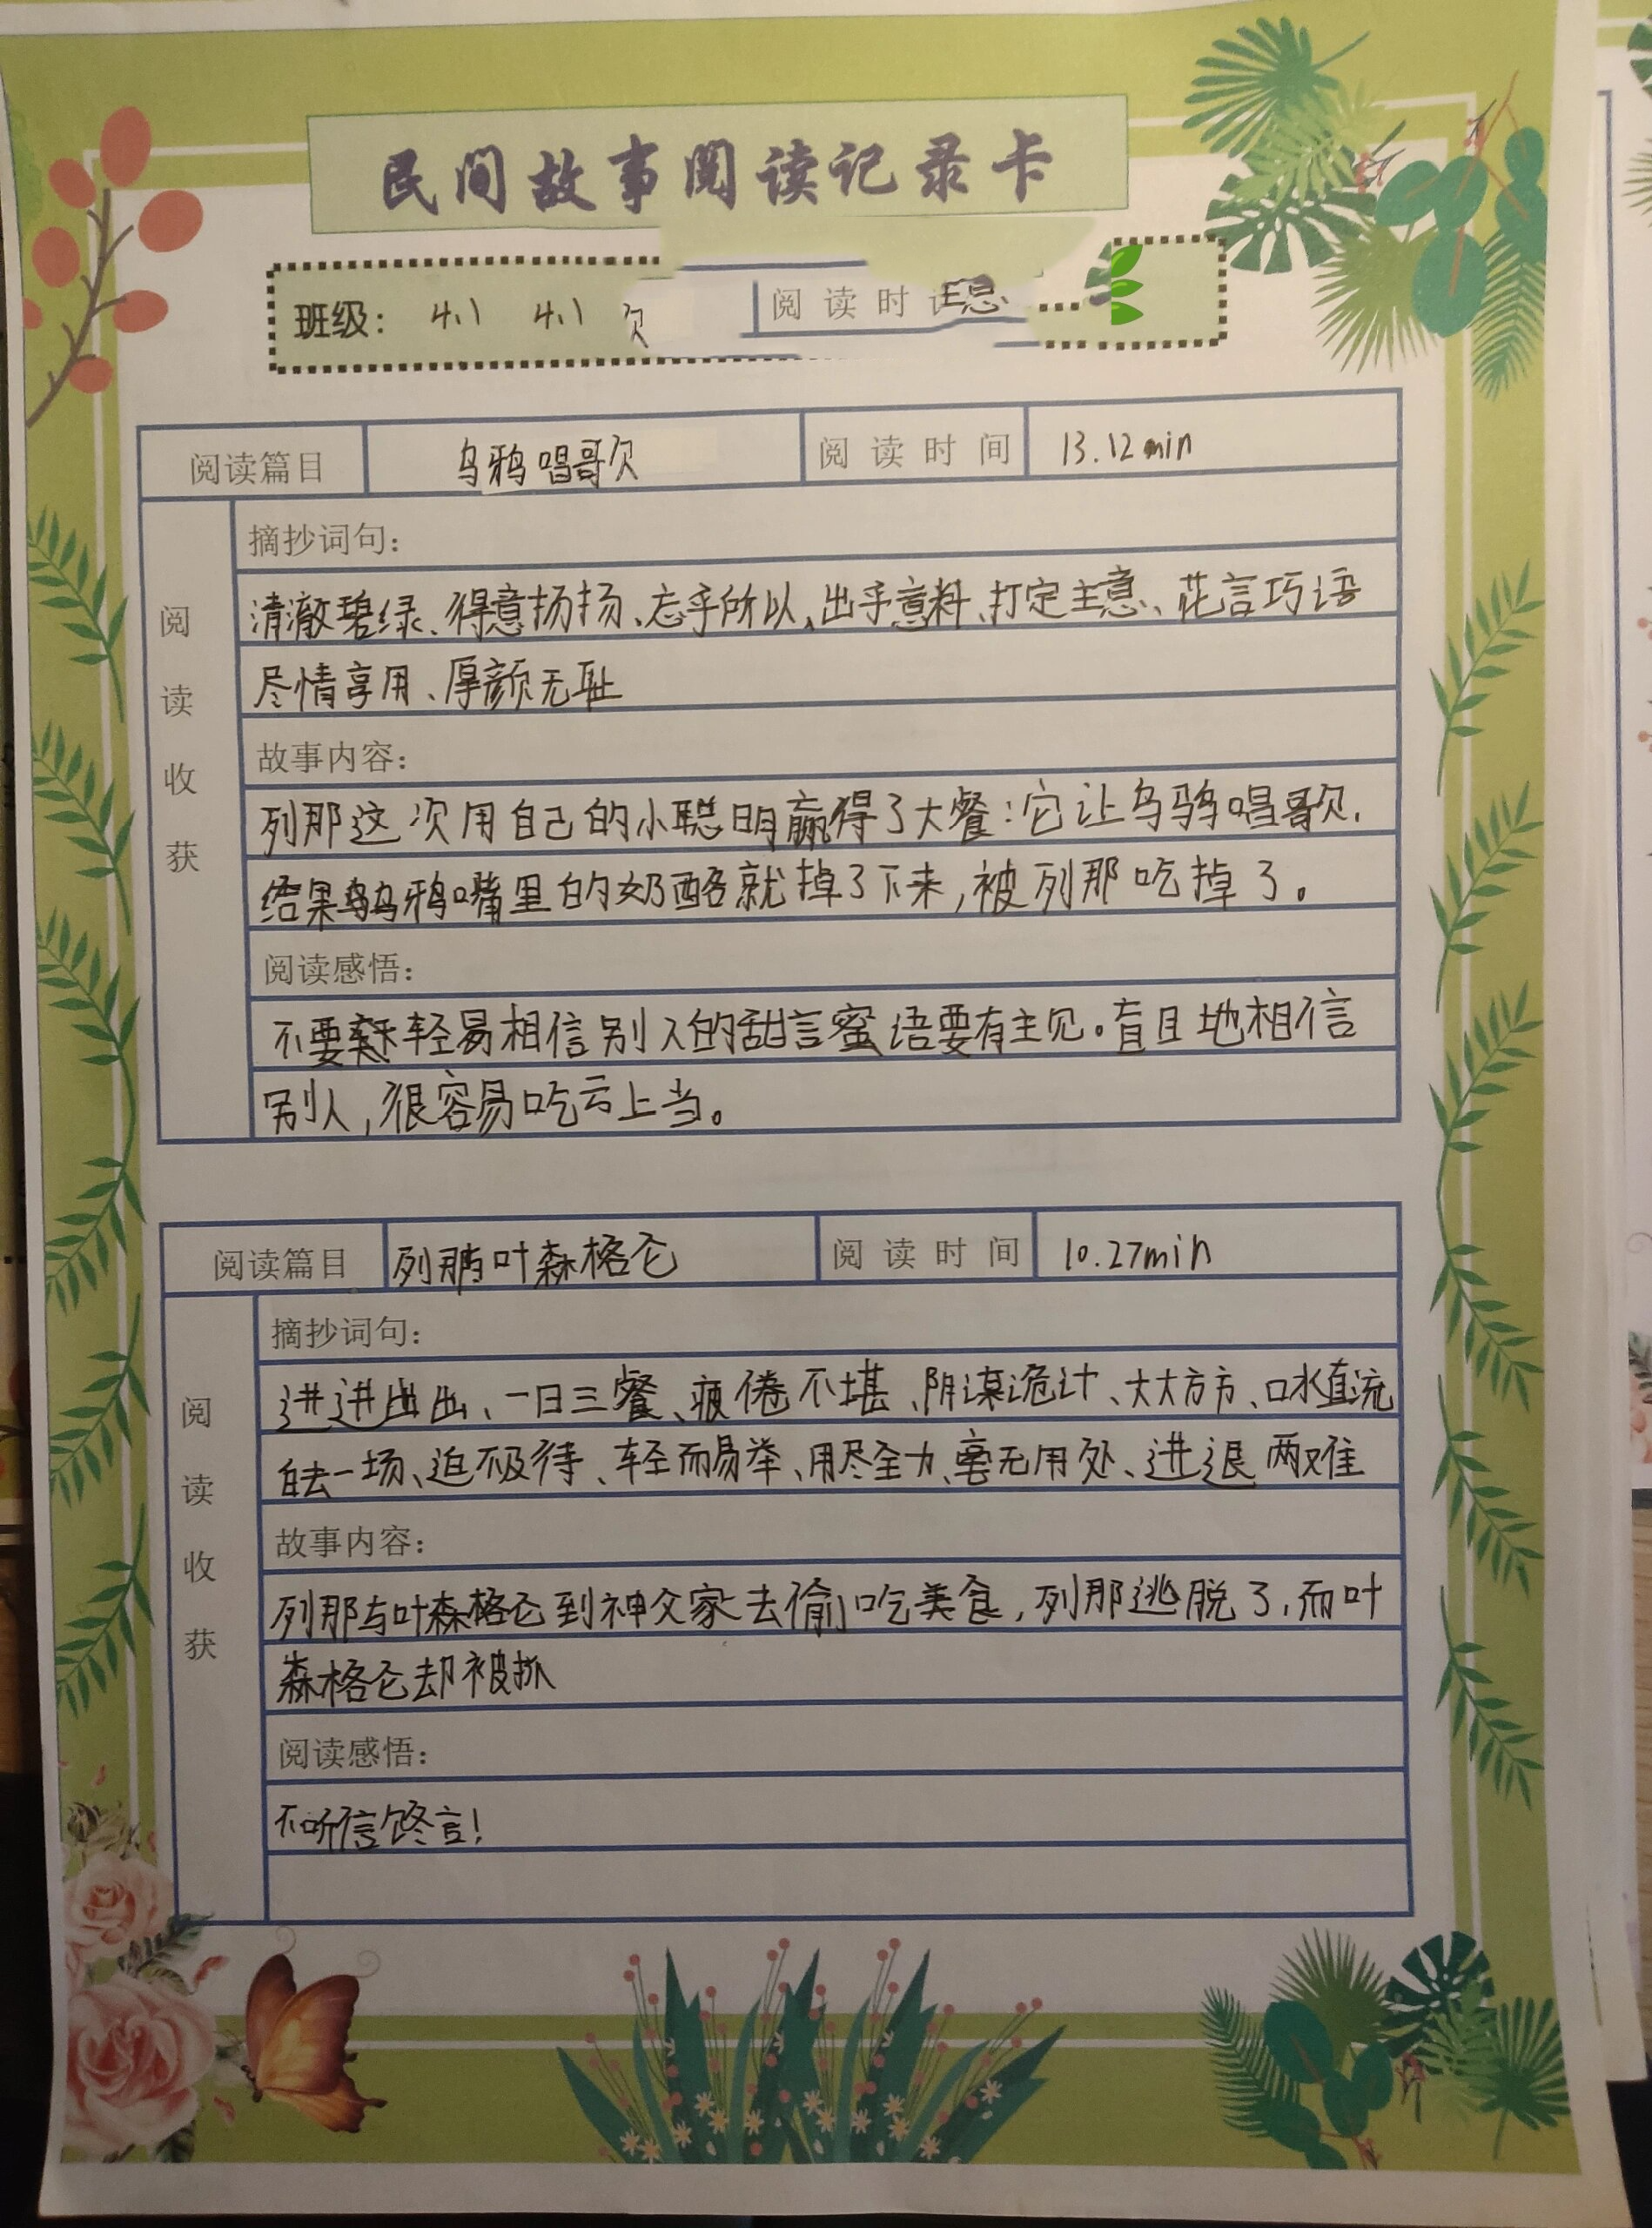 民间故事阅读记录卡
班级： 4.1 4.1
阅读时
阅读篇目 乌鸦唱歌 阅读时间 13.12min
阅读收获
摘抄词句：
清澈碧绿、得意扬扬、忘乎所以、出乎意料、打定主意、花言巧语
尽情享用、厚颜无耻
故事内容：
列那这次用自己的小聪明赢得了大餐：它让乌鸦唱歌，
结果乌鸦嘴里的奶酪就掉了下来，被列那吃掉了。
阅读感悟：
不要轻易相信别人的甜言蜜语要有主见。盲目地相信
别人，很容易吃亏上当。
阅读篇目 列那与叶森格仑 阅读时间 10.27min
阅读收获
摘抄词句：
进进出出、一日三餐、疲倦不堪、阴谋诡计、大大方方、口水直流
白去一场、迫不及待、轻而易举、用尽全力、毫无用处、进退两难
故事内容：
列那与叶森格仑到神父家去偷吃美食，列那逃脱了，而叶
森格仑却被抓
阅读感悟：
不听信言！